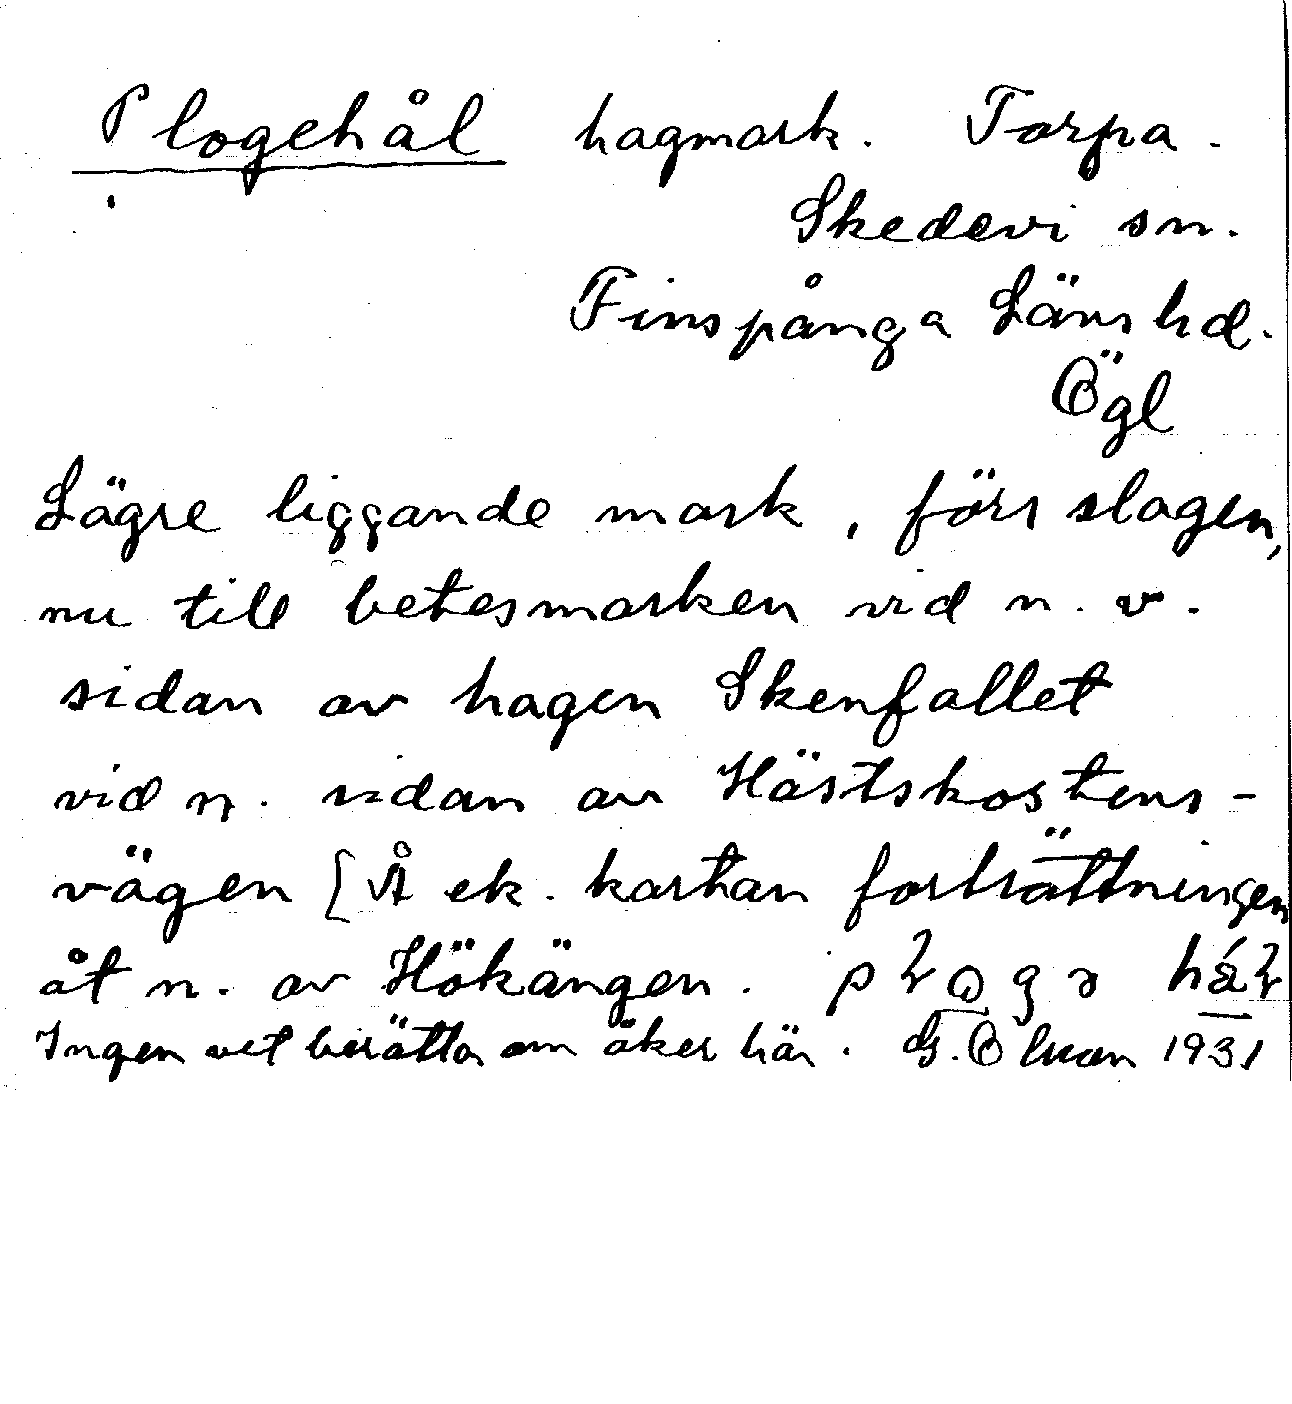 Plogehål hagmark. Torpa.
Skedevi sn.
Finspånga Läns hd.
Ögl
Lägre liggande mark, förr slagen,
nu till betesmarken vid n. v.
sidan av hagen Skenfallet
vid n. sidan av Hästskostens-
vägen [Å ek. kartan fortsättningen
åt n. av Hökängen.
Ingen vet berätta om åker här. G. Olson 1931